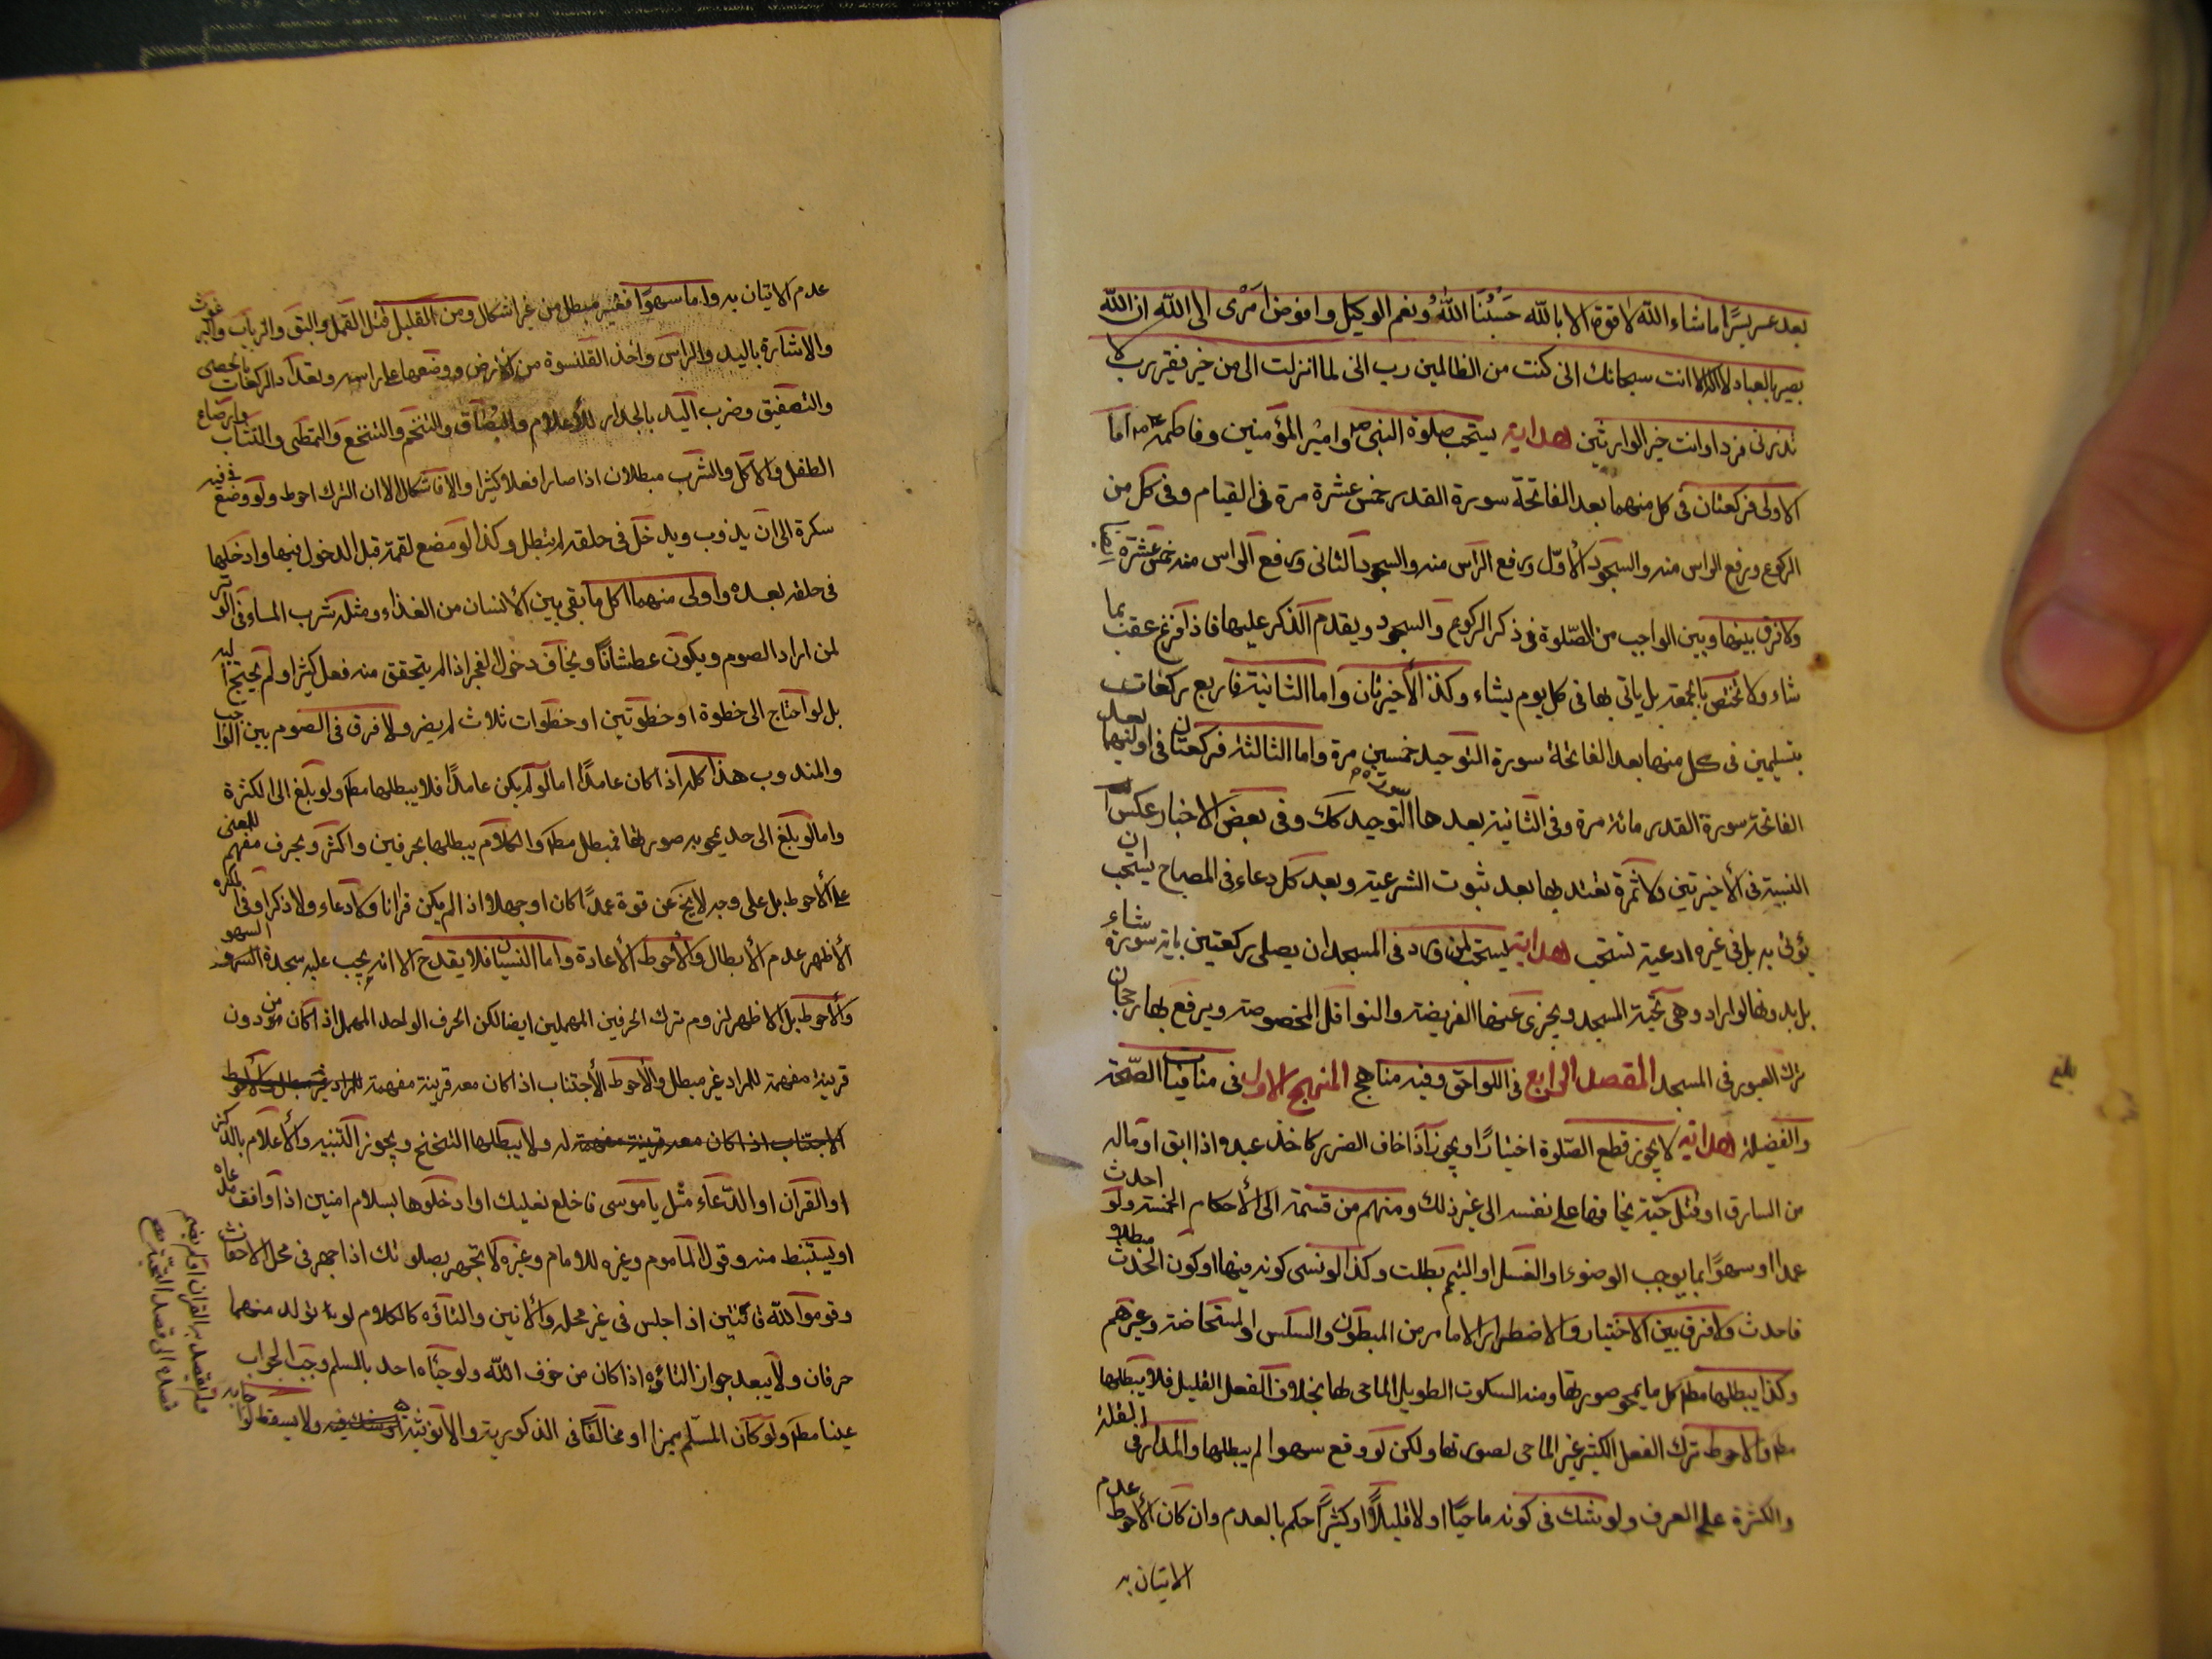 بعد عسر يسرًا ما شاء الله لا قوة الا بالله حَسْبُنَا اللهُ ونعم الوكيل وافوض امْرى الى الله ان الله
بصير بالعباد لا اله الا انت سبحانك انى كنت من الظالمين رب انى لما انزلت الى من خير فقير رب لا
تذرنى فردا وانت خير الوارثين هداية يستحب صلوة النبى ص وامير المؤمنين وفاطمة ع اما
الاولى فركعتان فى كل منهما بعد الفاتحة سورة القدر خمس عشرة مرة فى القيام وفى كل من
الركوع ورفع الراس منه والسجود الأوّل ورفع الراس منه والسجود الثانى ورفع الراس منه خمس عشرة
ولا فرق بينها وبين الواجب من الصّلوة فى ذكر الركوع والسجود ويقدم الذكر عليها فاذا فرغ عقب بما
شاء ولا تختص بالجمعة بل ياتى بها فى كل يوم يشاء وكذا الأخيرتان واما الثانية فاربع ركعات
بتسليمين فى كل منها بعد الفاتحة سورة التوحيد خمسين مرة واما الثالثة فركعتان فى اوليهما بعد
الفاتحة سورة القدر مائة مرة وفى الثانية بعدها سورة التوحيد كك وفى بعض الاخبار عكس
النسبة فى الأخيرتين ولا ثمرة يعتد بها بعد ثبوت الشرعية وبعد كل دعاء فى المصباح يستحب ان
يؤتى به بل فى غيره ادعية تستحب هداية يستحب لمن ورد فى المسجد ان يصلى ركعتين باية سورة شاء
بل بدونها لو اراد وهى تحية المسجد ويجزى عنها الفريضة والنوافل المخصوصة ويرفع بها رجحان
ترك العبور فى المسجد المقصد الرابع فى اللواحق وفيه مناهج المنهج الاول فى منافيات الصّحة
والفضيلة هداية لا يجوز قطع الصّلوة اختيارًا ويجوز اذا خاف الضرر كاخذ عبده اذا ابق او ماله
من السارق او قتل حيّة يخافها على نفسه الى غير ذلك ومنهم من قسمه الى الأحكام الخمسة ولو احدث
عمدا او سهوًا بما يوجب الوضوء او الغسل او التيمم بطلت وكذا لو نسى كونه فيها او كون الحدث مبطلا
فاحدث ولا فرق بين الاختيار والاضطرار الا ما مر من المبطون والسلس او المستحاضة وغيرهم
وكذا يبطلها مطلقا كل ما يمحو صورتها ومنه السكوت الطويل الماحى لها بخلاف الفعل القليل فلا يبطلها
مطلقا والاحوط ترك الفعل الكثير غير الماحى لصورتها ولكن لو وقع سهوا لم يبطلها والمدار فى القلة
والكثرة على العرف ولو شك فى كونه ماحيًا او لا قليلًا او كثيرًا حكم بالعدم وان كان الأحوط عدم
الاتيان به
بلغ
عدم الاتيان به واما سهوًا فغير مبطل من غير اشكال ومن القليل قتل القمل والبق والبرغوث
والاشارة باليد والراس واخذ القلنسوة من الأرض ووضعها على راسه وتعداد الركعات بالحصى
والتصفيق وضرب اليد بالجدار للأعلام والبصاق والتنخم والتنخع والتمطى والتثاب وارضاع
الطفل والأكل والشرب مبطلان اذا صارا فعلا كثيرا والا فاشكال الا ان الترك احوط ولو وضع فى فيه
سكرة الى ان يذوب ويدخل فى حلقه لم يبطل وكذا لو مضغ لقمة قبل الدخول فيها وادخلها
فى حلقه بعده واولى منهما اكل ما بقى بين الأسنان من الغذاء ومثله شرب الماء فى الوتر
لمن اراد الصوم ويكون عطشانًا ويخاف دخول الفجر اذا لم يتحقق منه فعل كثير او لم يحتج اليه
بل لو احتاج الى خطوة او خطوتين او خطوات ثلاث لم يضر ولا فرق فى الصوم بين الواجب
والمندوب هذا كله اذا كان عامدًا اما لو لم يكن عامدًا فلا يبطلها مطلقا ولو بلغ الى الكثرة
واما لو بلغ الى حد يمحو به صورتها فمبطل مطلقا والكلام يبطلها بحرفين واكثر وبحرف مفهم للمعنى
على الأحوط بل على وجه لا يخ عن قوة عمدًا كان او جهلا اذا لم يكن قرانا ولا دعاء ولا ذكرا وفى المكره
الأظهر عدم الأبطال والأحوط الأعادة واما النسيان فلا يقدح الا انه يجب عليه سجدة السهو
والأحوط بل الاظهر لزوم ترك الحرفين المهملين ايضا لكن الحرف الواحد المهمل اذا كان من دون
قرينة مفهمة للمراد غير مبطل والأحوط الأجتناب اذا كان معه قرينة مفهمة للمراد غير مبطل والأحوط
الاجتناب اذا كان معه قرينة مفهمة له ولا يبطلها التنحنح ويجوز التنبيه والأعلام بالذكر
او القرآن او الدّعاء مثل يا موسى فاخلع نعليك او ادخلوها بسلام امنين اذا وافق مدعاه
او ليستنبط منه وقول المأموم وغيره للامام وغيره لا تجهر بصلوتك اذا جهر فى محل الاخفات
وقوموا لله قانتين اذا جلس فى غير محله والأنين والتأوه كالكلام لو تولد منهما
حرفان ولا يبعد جواز التاوّه اذا كان من خوف الله ولو حيّاه احد بالسلم وجب الجواب
عينا مطلقا ولو كان المسلّم مميزا او مخالفًا فى الذكورية والأنوثية ولا يسقط لو اجابه
فلم يقصد به القران او لم يضم
قصده الى قصد التحية صح